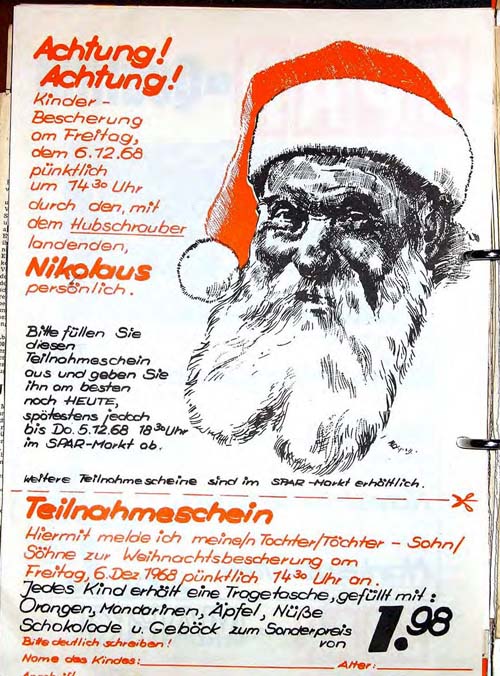 Achtung!
Achtung!
Kinder-
Bescherung
am Freitag,
dem 6.12.68
pünktlich
um 14.30 Uhr
durch den, mit
dem Hubschrauber
landenden,
Nikolaus
persönlich.
Bitte füllen Sie
diesen
Teilnahmeschein
aus und geben Sie
ihn am besten
noch HEUTE,
spätestens jedoch
bis Do. 5.12.68 18 30 Uhr
im SPAR-Markt ab.
Weitere Teilnahmescheine sind im SPAR-Markt erhältlich.
Teilnahmeschein
Hiermit melde ich meine/n Tochter/Töchter - Sohn/
Söhne zur Weihnachtsbescherung am
Freitag, 6. Dez 1968 pünktlich 14 30 Uhr an.
Jedes Kind erhält eine Tragetasche, gefüllt mit:
Orangen, Mandarinen, Äpfel, Nüße
Schokolade u. Gebäck zum Sonderpreis
von 1.98
Bitte deutlich schreiben!
Name des Kindes: Alter: